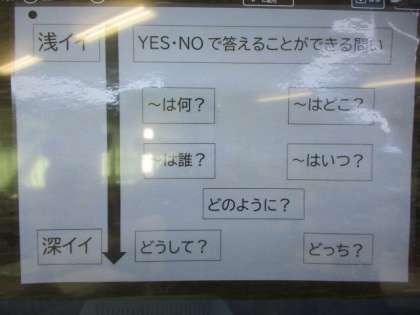 浅イイ
YES・NOで答えることができる問い
～は何？
～はどこ？
～は誰？
～はいつ？
どのように？
深イイ
どうして？
どっち？